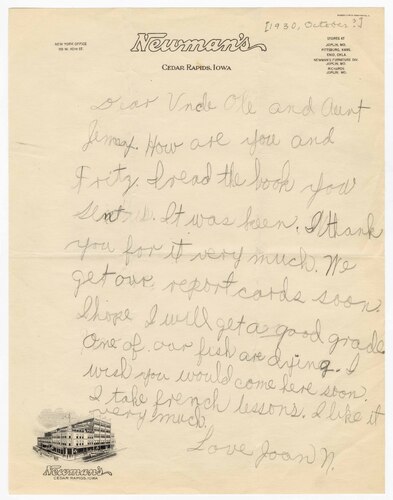 [1930, October?]
NEW YORK OFFICE
Newman's
CEDAR RAPIDS, IOWA
STORES AT
JOPLIN, MO.
PITTSBURG, KANS.
ENID, OKLA.
NEWMAN'S FURNITURE DIV.
JOPLIN, MO.
RICHARDS
JOPLIN, MO.
Dear Uncle Ole and Aunt
Jenny. How are you and
Fritz. I read the book you
sent. It was keen. I thank
you for it very much. We
get our report cards soon.
I hope I will get a good grade.
One of our fish are dying. I
wish you would come here soon.
I take french lessons. I like it
very much.
Love Joan N.
Newman's
CEDAR RAPIDS, IOWA